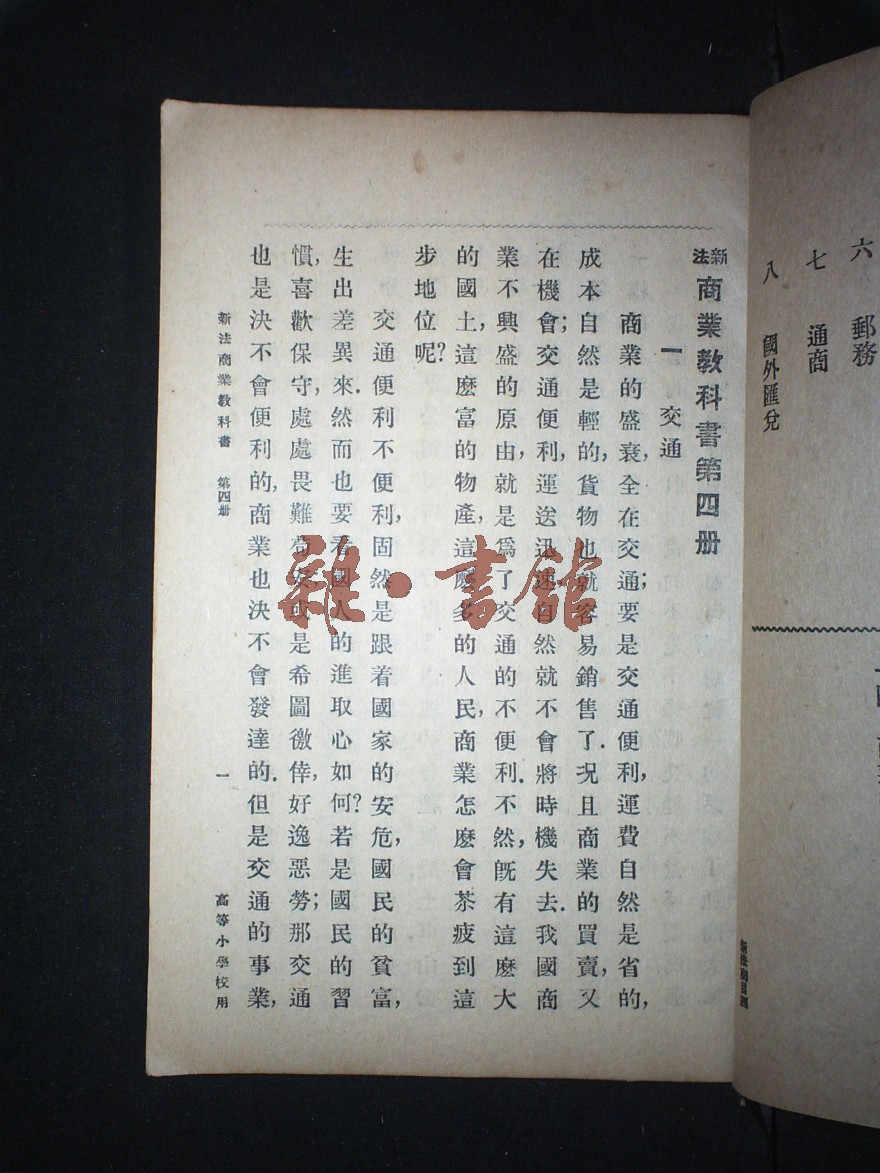 六　郵務
七　通商
八　國外匯兌
新法商業教科書第四册
一　交通
商業的盛衰,全在交通;要是交通便利,運費自然是省的,
成本自然是輕的,貨物也就容易銷售了.况且商業的買賣,又
在機會;交通便利,運送迅速,自然就不會將時機失去.我國商
業不興盛的原由,就是爲了交通的不便利.不然,旣有這麽大
的國土,這麽富的物產,這麽多的人民,商業怎麽會茶疲到這
步地位呢?
交通便利不便利,固然是跟着國家的安危,國民的貧富,
生出差異來.然而也要看國人的進取心如何?若是國民的習
慣,喜歡保守,處處畏難苟安;或是希圖徼倖,好逸惡勞;那交通
也是決不會便利的,商業也決不會發達的.但是交通的事業,
新法商業教科書　第四册　一　高等小學校用
雜·書館